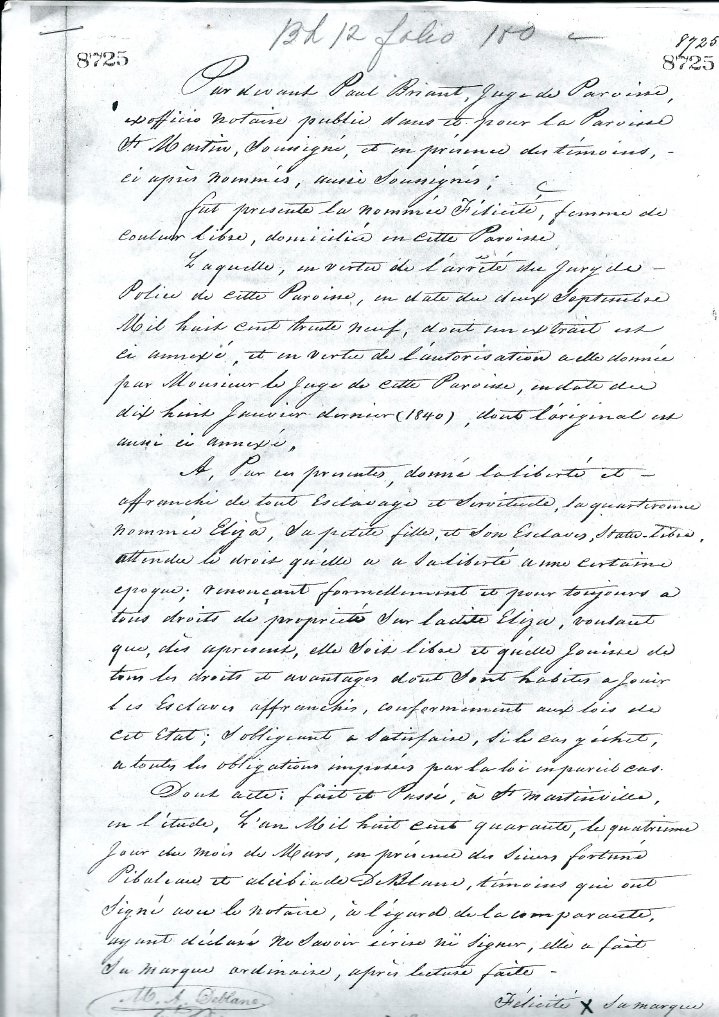 Bk 12 folio 100
8725
8725
8725
Pardevant Paul Briant, Juge de Paroisse,
exofficio notaire public dans et pour la Paroisse
St Martin, Soussigné, et en présence des témoins, -
ci après nommés, aussi Soussignés;
fut presente la nommée Félicité, femme de
couleur libre, domiciliée en cette Paroisse.
Laquelle, en vertu de l'arrêté du Jury de -
Police de cette Paroisse, en date du deux Septembre
Mil huit cent trente neuf, dont un extrait est
ci annexé, et en vertu de l'autorisation a elle donnée
par Monsieur le Juge de cette Paroisse, en date du
dix huit Janvier dernier (1840), dont l'original est
aussi ci annexé,
A, Par ces presentes, donné la liberté et -
affranchi de tout Esclavage et Servitude, la quarteronne
nommée Eliza, Sa petite fille, et Son Esclave, Statu-libre,
attendu le droit qu'elle a a Sa liberté a une certaine
epoque; renonçant formellement et pour toujours a
tous droits de propriété Sur ladite Eliza, voulant
que, dès apresent, elle Soit libre et quélle Jouisse de
tous les droits et avantages dont Sont habiles a Jouir
les Esclaves affranchis, conformement aux lois de
cet Etat; S'obligeant a Satisfaire, Si le cas y échet,
a toutes les obligations imposées par la loi en pareil cas.
Dont acte: fait et Passé, à St Martinville,
en l'étude, L'an Mil huit cent quarante, le quatrieme
Jour du mois de Mars, en présence des Sieurs fortuné
Pibaleau et alcibiade DeBlanc, témoins qui ont
Signé avec le notaire, à l'égard de la comparante,
ayant déclaré ne Savoir écrire ni Signer, elle a fait
Sa marque ordinaire, après lecture faite -
M. A. Deblanc
Félicité X Sa marque